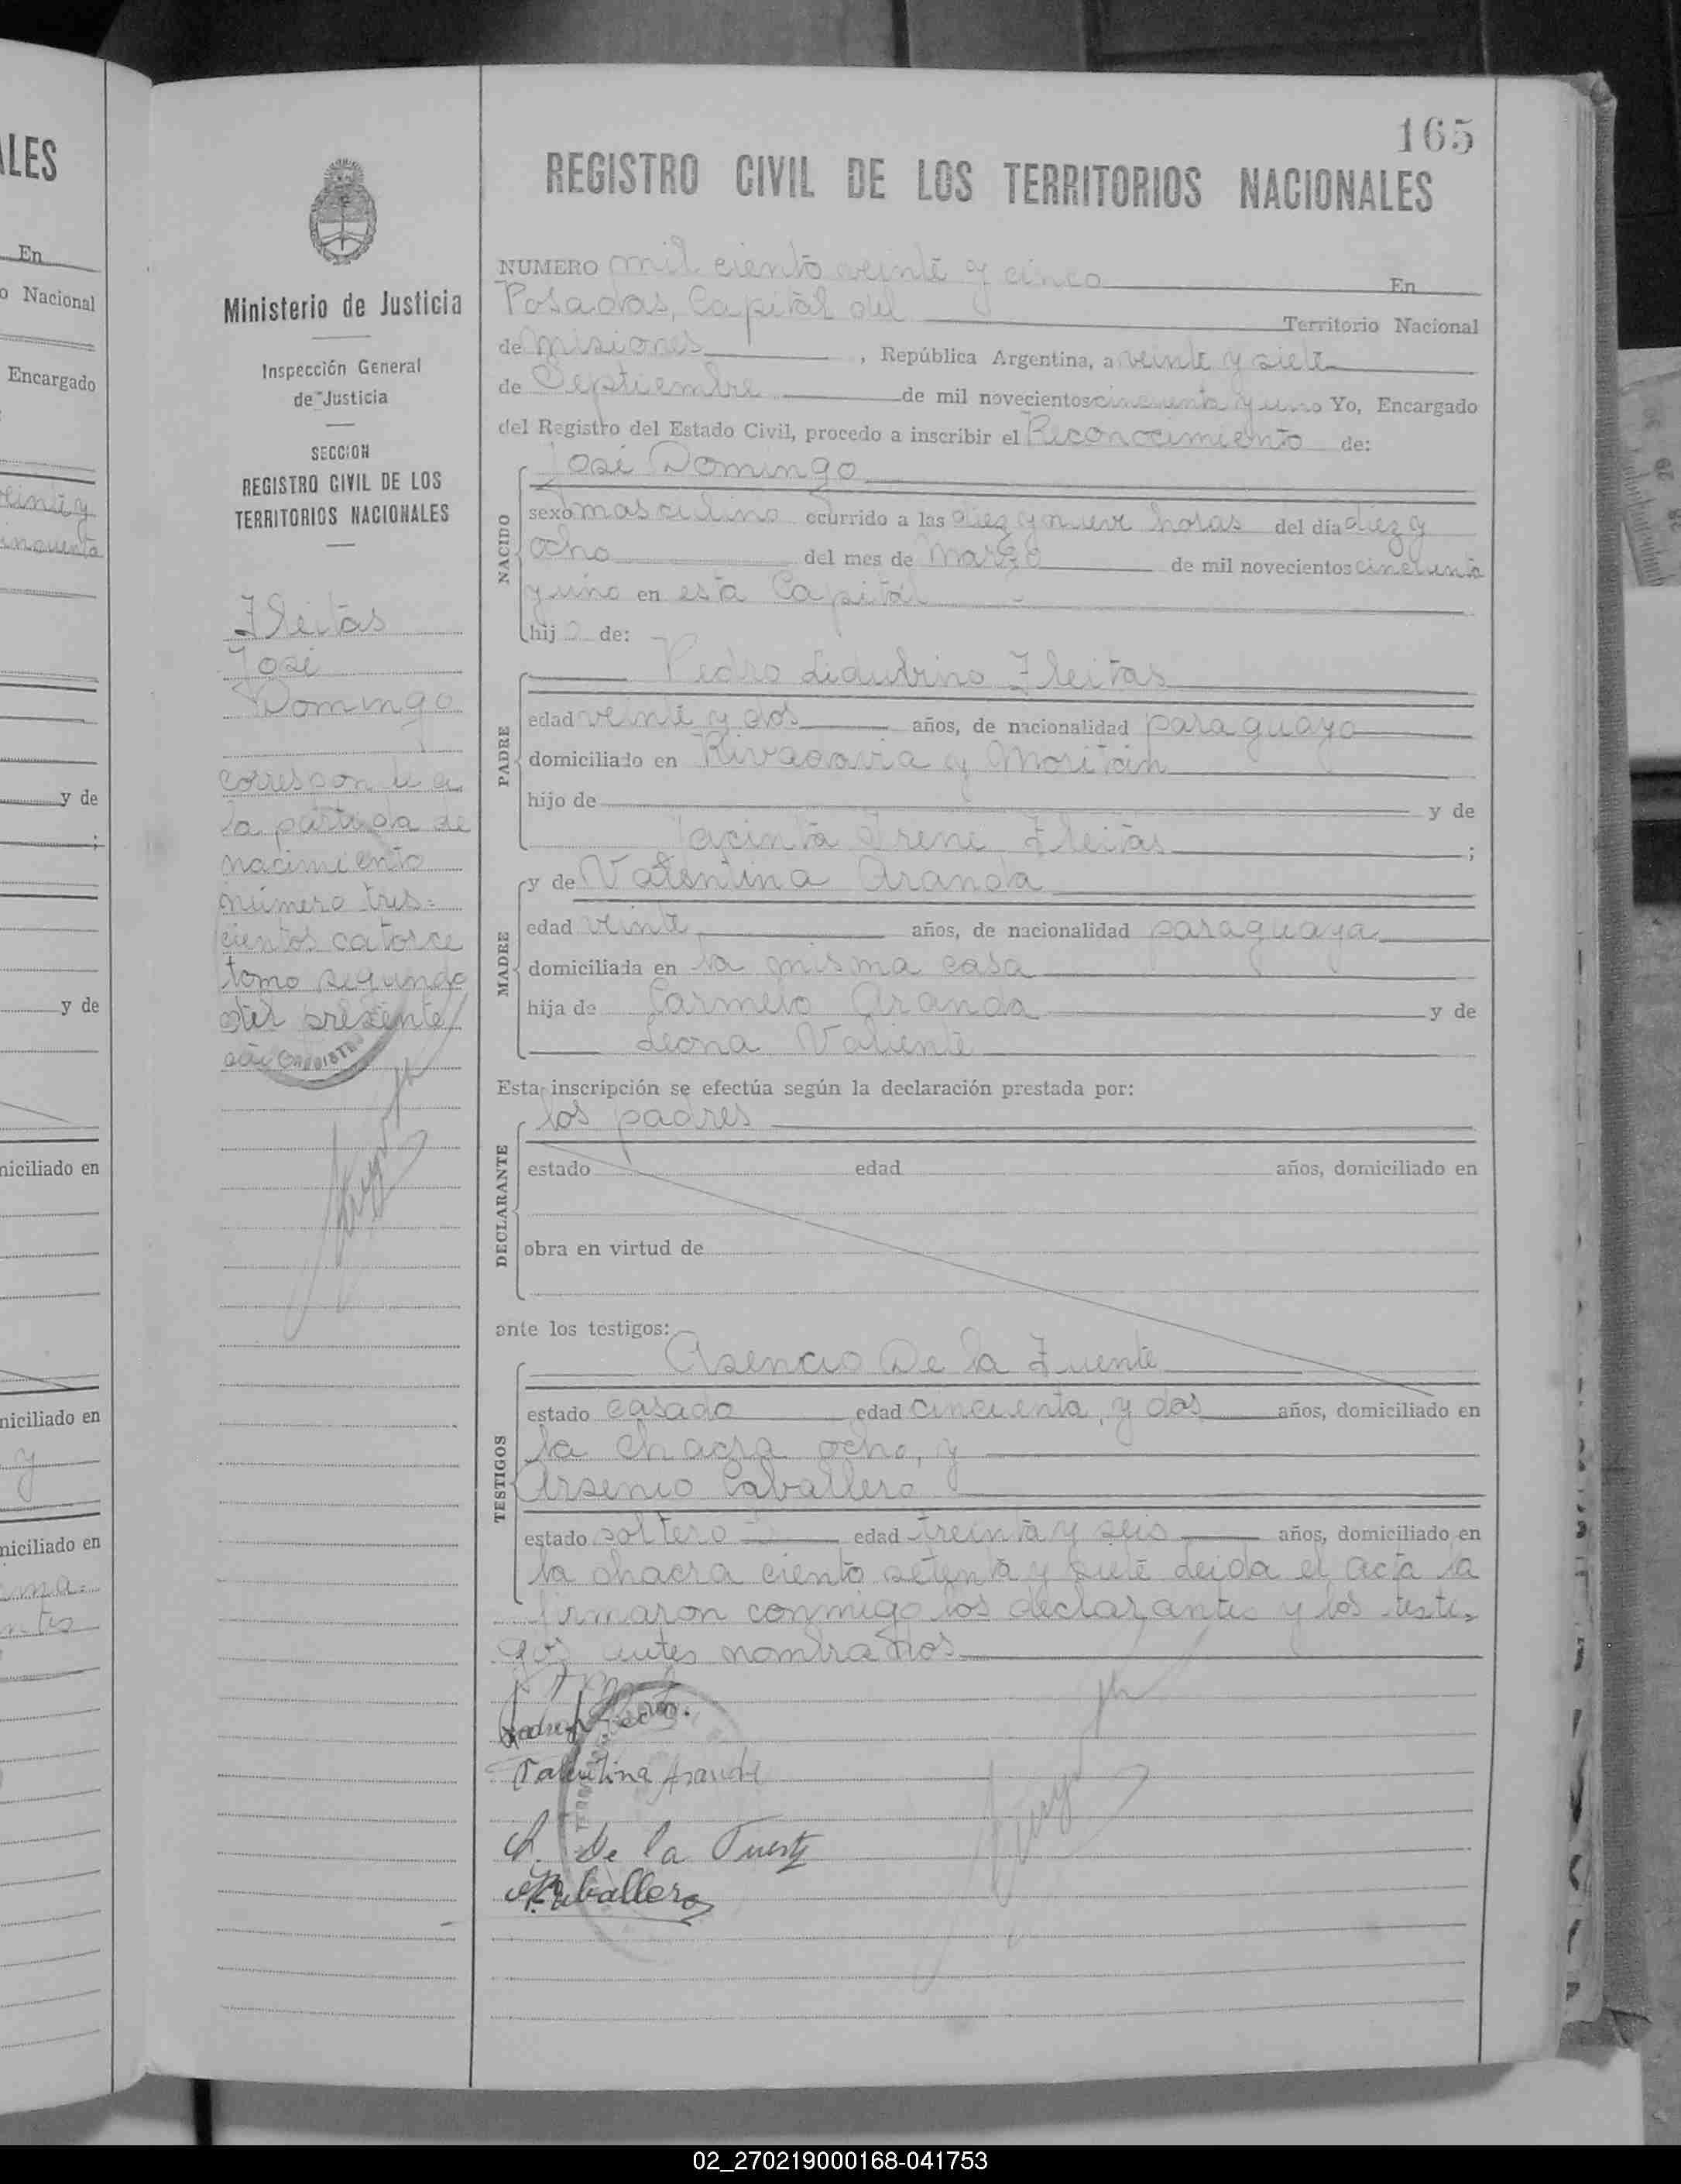 165
REGISTRO CIVIL DE LOS TERRITORIOS NACIONALES
NUMERO mil ciento veinte y cinco En
Posadas, Capital del Territorio Nacional
de Misiones, República Argentina, a veinte y siete
de Septiembre de mil novecientos cincuenta y uno Yo, Encargado
del Registro del Estado Civil, procedo a inscribir el Reconocimiento de:
NACIDO
José Domingo
sexo masculino ocurrido a las diez y nueve horas del día diez y
ocho del mes de Marzo de mil novecientos cincuenta
y uno en esta Capital
hijo de:
PADRE
Pedro Fleitas
edad veinte y dos años, de nacionalidad paraguayo
domiciliado en Rivadavia y Moritán
hijo de y de
Jacinta Irene Fleitas ;
MADRE
y de Valentina Aranda
edad veinte años, de nacionalidad paraguaya
domiciliada en la misma casa
hija de Carmelo Aranda y de
Leona Valiente
Esta inscripción se efectúa según la declaración prestada por:
DECLARANTE
los padres
estado edad años, domiciliado en
obra en virtud de
ante los testigos:
TESTIGOS
Asencio De la Fuente
estado casado edad cincuenta y dos años, domiciliado en
la chacra ocho, y
Arsenio Caballero
estado soltero edad treinta y seis años, domiciliado en
la chacra ciento setenta y siete leida el acta la
firmaron conmigo los declarantes y los testi-
gos antes nombrados
Valentina Aranda
A. De la Fuente
Caballero
Ministerio de Justicia
Inspección General
de Justicia
SECCION
REGISTRO CIVIL DE LOS
TERRITORIOS NACIONALES
Fleitas
José
Domingo
corresponde a
la partida de
nacimiento
número tres-
cientos catorce
tomo segundo
del presente
año
ALES
En
o Nacional
Encargado
veinte y
cincuenta
y de
;
y de
niciliado en
niciliado en
y
niciliado en
02_270219000168-041753